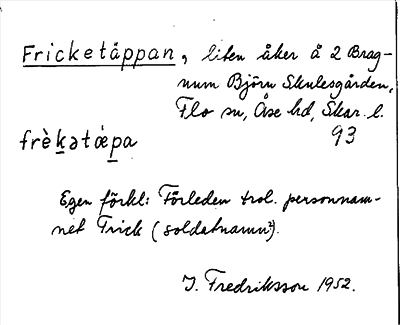 Fricketåppan, liten åker å 2 Brag-
num Björn Skulesgården,
Flo sn, Åse hd, Skar. l.
frèkatǻpa 93
Egen förkl: Förleden trol. personnam-
net Frick (soldatnamn?).
J. Fredriksson 1952.